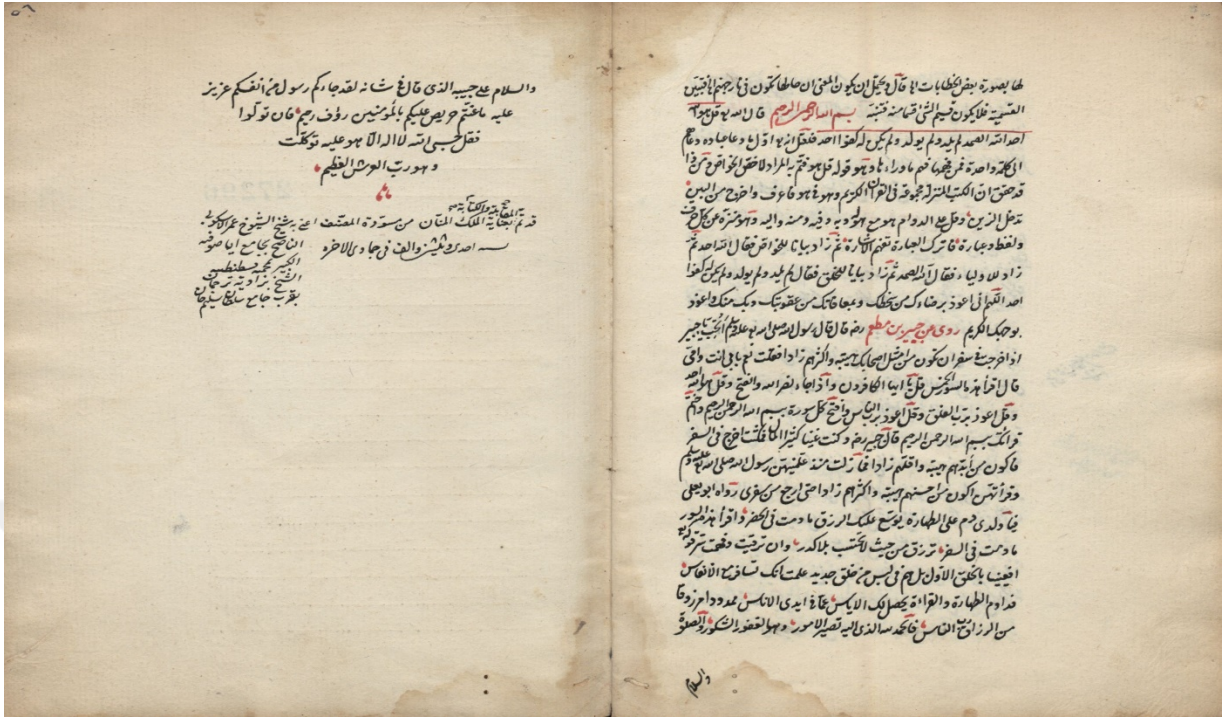 لها بصورة بعض الخطابات اها قال ويحتمل ان يكون المعنى ان حاملها تكون فى نار جهنم
القسمية فلا يكون قسيم الشئ قسما منه بسم الله الرحمن الرحيم قال الله تع قل هو الله
احد الله الصمد لم يلد ولم يولد ولم يكن له كفوا احد
الى كلمة واحدة فمن فهمها فهم ما وراءها وهو قوله قل هو فتم به المراد لاخص الخواص
قد حقق ان الكتب المنزلة مجموعة فى القرآن الكريم وهو فى هو فاعرف واخرج من البين
على الدوام هو مع هو وبه وفيه ومنه واليه وهو منزه عن كل حرف
ولفظ وعبارة فاترك العبارة تغنم الاشارة ثم زاد بيانا للخواص فقال الله احد ثم
زاد للاولياء فقال الله الصمد ثم زاد بيانا للخلق فقال لم يلد ولم يولد ولم يكن له كفوا
احد اللهم انى اعوذ برضاءك من سخطك وبمعافاتك من عقوبتك وبك منك واعوذ
بوجهك الكريم روى عن جبير بن مطعم رضه قال قال رسول الله صلى الله تع عليه وسلم اتحب يا جبير
اذا خرجت فى سفر ان تكون من امثل اصحابك هيبة واكثرهم زادا فقلت نعم بابى انت وامى
قال اقرأ هذه السور الخمس قل يا ايها الكافرون واذا جاء نصر الله والفتح وقل هو الله احد
وقل اعوذ برب الفلق وقل اعوذ برب الناس وافتح كل سورة بسم الله الرحمن الرحيم واختم
قرائتك بسم الله الرحمن الرحيم قال جبير رضه وكنت غنيا كثير المال فكنت اخرج فى السفر
فاكون من ابذهم هيبة واقلهم زادا فما زلت منذ علمنيهن رسول الله صلى الله تع عليه وسلم
وقرأتهن اكون من احسنهم هيبة واكثرهم زادا حتى ارجع من سفرى رواه ابو يعلى
فيا ولدى دم على الطهارة يوسع عليك الرزق ما دمت فى الحضر واقرأ هذه السور
ما دمت فى السفر ترزق من حيث لا تحتسب بلا كدر وان ترقيت وفهمت سر قوله تع
افعيينا بالخلق الاول بل هم فى لبس من خلق جديد علمت انك تسافر مع الانفاس
فداوم الطهارة والقراءة يحصل لك الاياس عما فى ايدى الاناس ممدودا مرزوقا
من الرزاق رب الناس فالحمد لله الذى اليه تصير الامور وهو الغفور الشكور والصلوة
والسلام
والسلام على حبيبه الذى قال فى شانه لقد جاءكم رسول من انفسكم عزيز
عليه ما عنتم حريص عليكم بالمؤمنين رؤف رحيم فان تولوا
فقل حسبى الله لا اله الا هو عليه توكلت
وهو رب العرش العظيم
قد تم المقابلة والكتابة بعناية الملك المنان من مسودة المصنف اعنى به شيخ الشيوخ
سنه احدى وثلثين والف فى جمادى الاخره
الناصح بجامع ايا صوفيه
الكبير بمحميه قسطنطنيه
الشيخ بزاوية ترجمان
بقرب جامع سلطان سليم خان